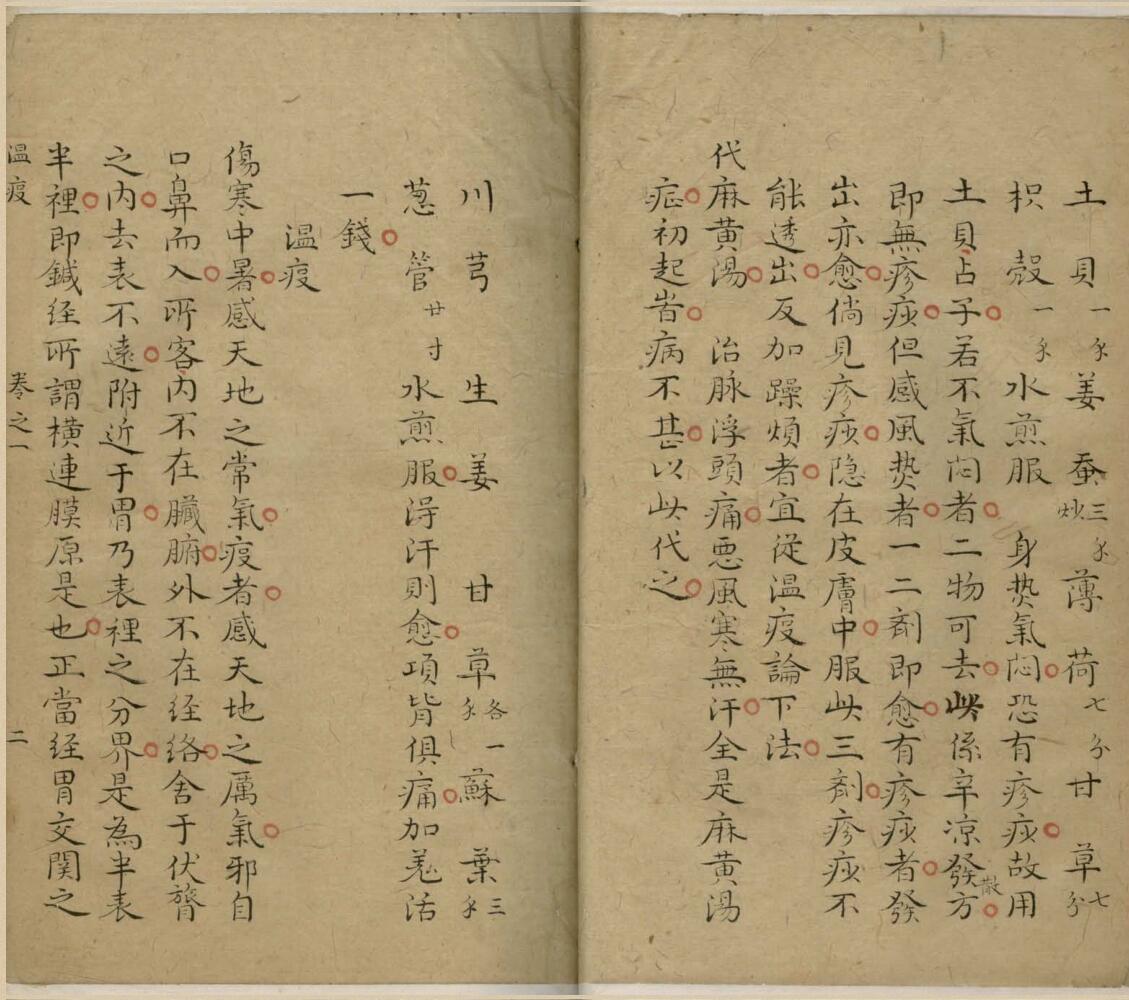 土貝一錢姜蚕炒三錢薄荷七分甘草七分
枳殼一錢水煎服 身熱氣悶恐有疹痧故用
土貝占子若不氣悶者二物可去此係辛凉發散方
即無疹痧但感風熱者一二劑即愈有疹痧者發
出亦愈倘見疹痧隐在皮膚中服此三劑疹痧不
能透出反加躁煩者宜從温疫論下法
代麻黄湯 治脉浮頭痛悪風寒無汗全是麻黄湯
症初起岩病不甚以此代之
川芎生姜甘草各一錢蘇葉三錢
葱管廿寸水煎服淂汗則愈項背俱痛加羗活
一錢
温疫
傷寒中暑感天地之常氣疫者感天地之厲氣邪自
口鼻而入所客内不在臓腑外不在経絡舎于伏膂
之内去表不遠附近于胃乃表裡之分界是為半表
半裡即鍼经所謂横連膜原是也正當经胃交関之
温疫 卷之一 二